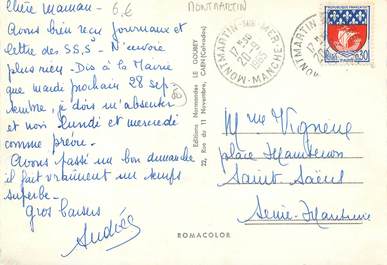 Chère Maman -
6.€
MONTMARTIN
Avons bien reçu journaux et
lettre des S.S. N'envoie
plus rien - Dis à la Mairie
que mardi prochain 28 sep-
tembre, je dois m'absenter
et non lundi et mercredi
comme prévu.
Avons passé un bon dimanche
il fait vraiment un temps
superbe -
Gros baisers
Andrée
Editions Normandes LE GOUBEY
22, Rue du 11 Novembre, CAEN (Calvados)
MONTMARTIN-SUR-MER
17 H 30
20-9
1965
MANCHE
0,30
Mme Vigneux
place Maintenon
Saint Saëns
Seine-Maritime
ROMACOLOR